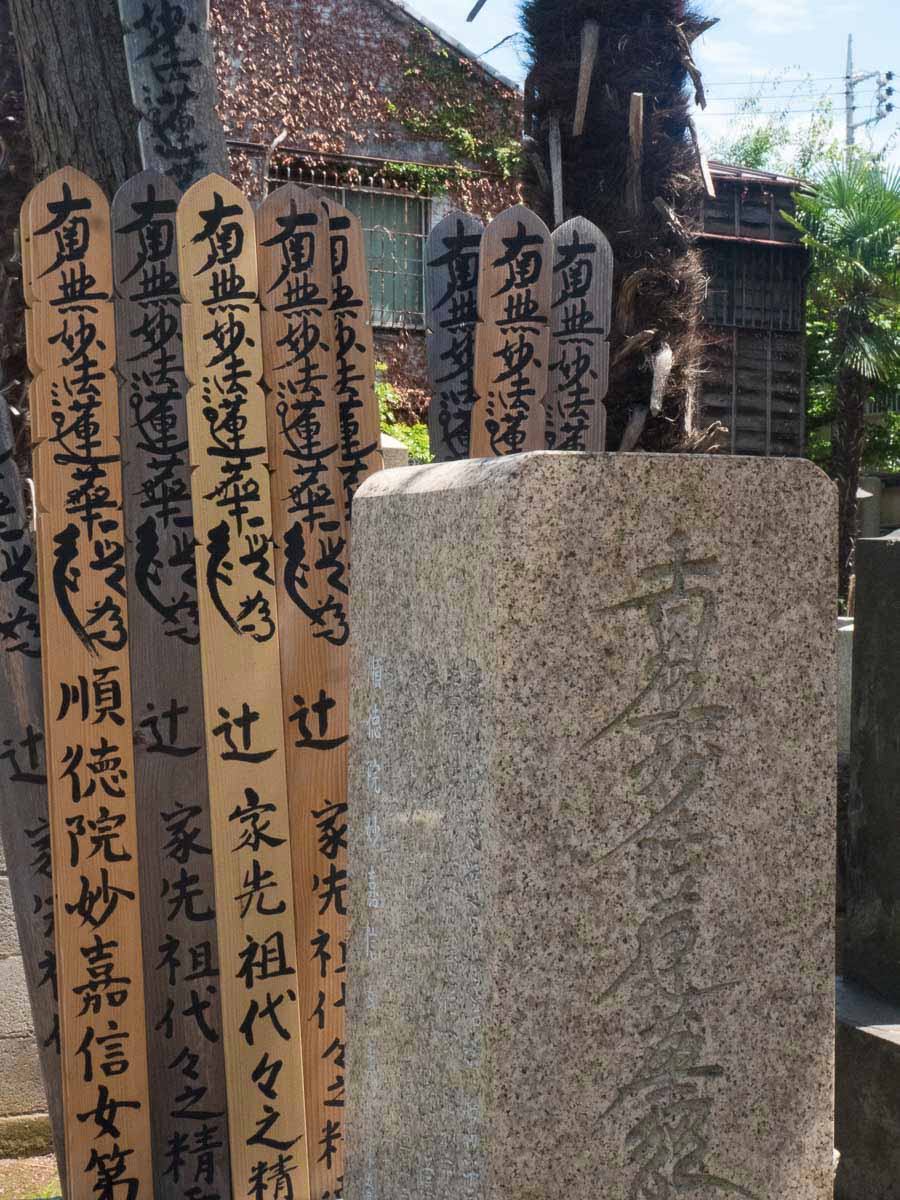 妙法蓮
辻家先祖代
南無妙法蓮華経為順徳院妙嘉信女第
南無妙法蓮華経為辻家先祖代々之精
南無妙法蓮華経為辻家先祖代々之精
南無妙法蓮華経為辻家先祖代々之精
南無妙法蓮
南無妙法蓮
南無妙法蓮
南無妙法蓮
南無妙法蓮華経